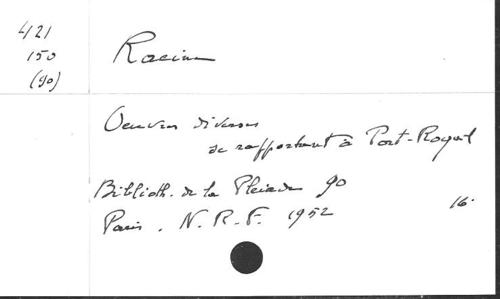 421
150
(90)
Racine
Oeuvres diverses
se rapportant à Port-Royal
Biblioth. de la Pleiade 90
16.
Paris. N.R.F. 1952